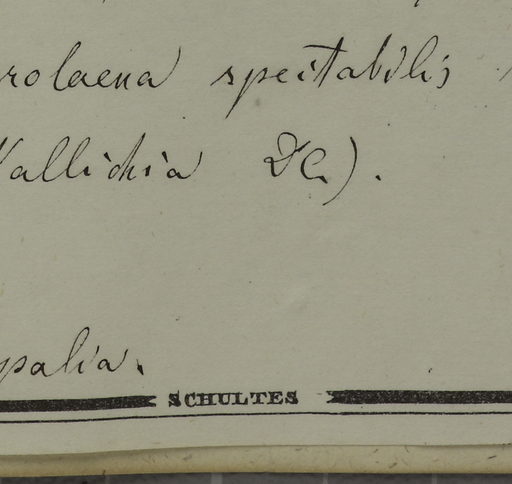 rolaena spectabilis
Wallichia DC).
palia.
SCHULTES